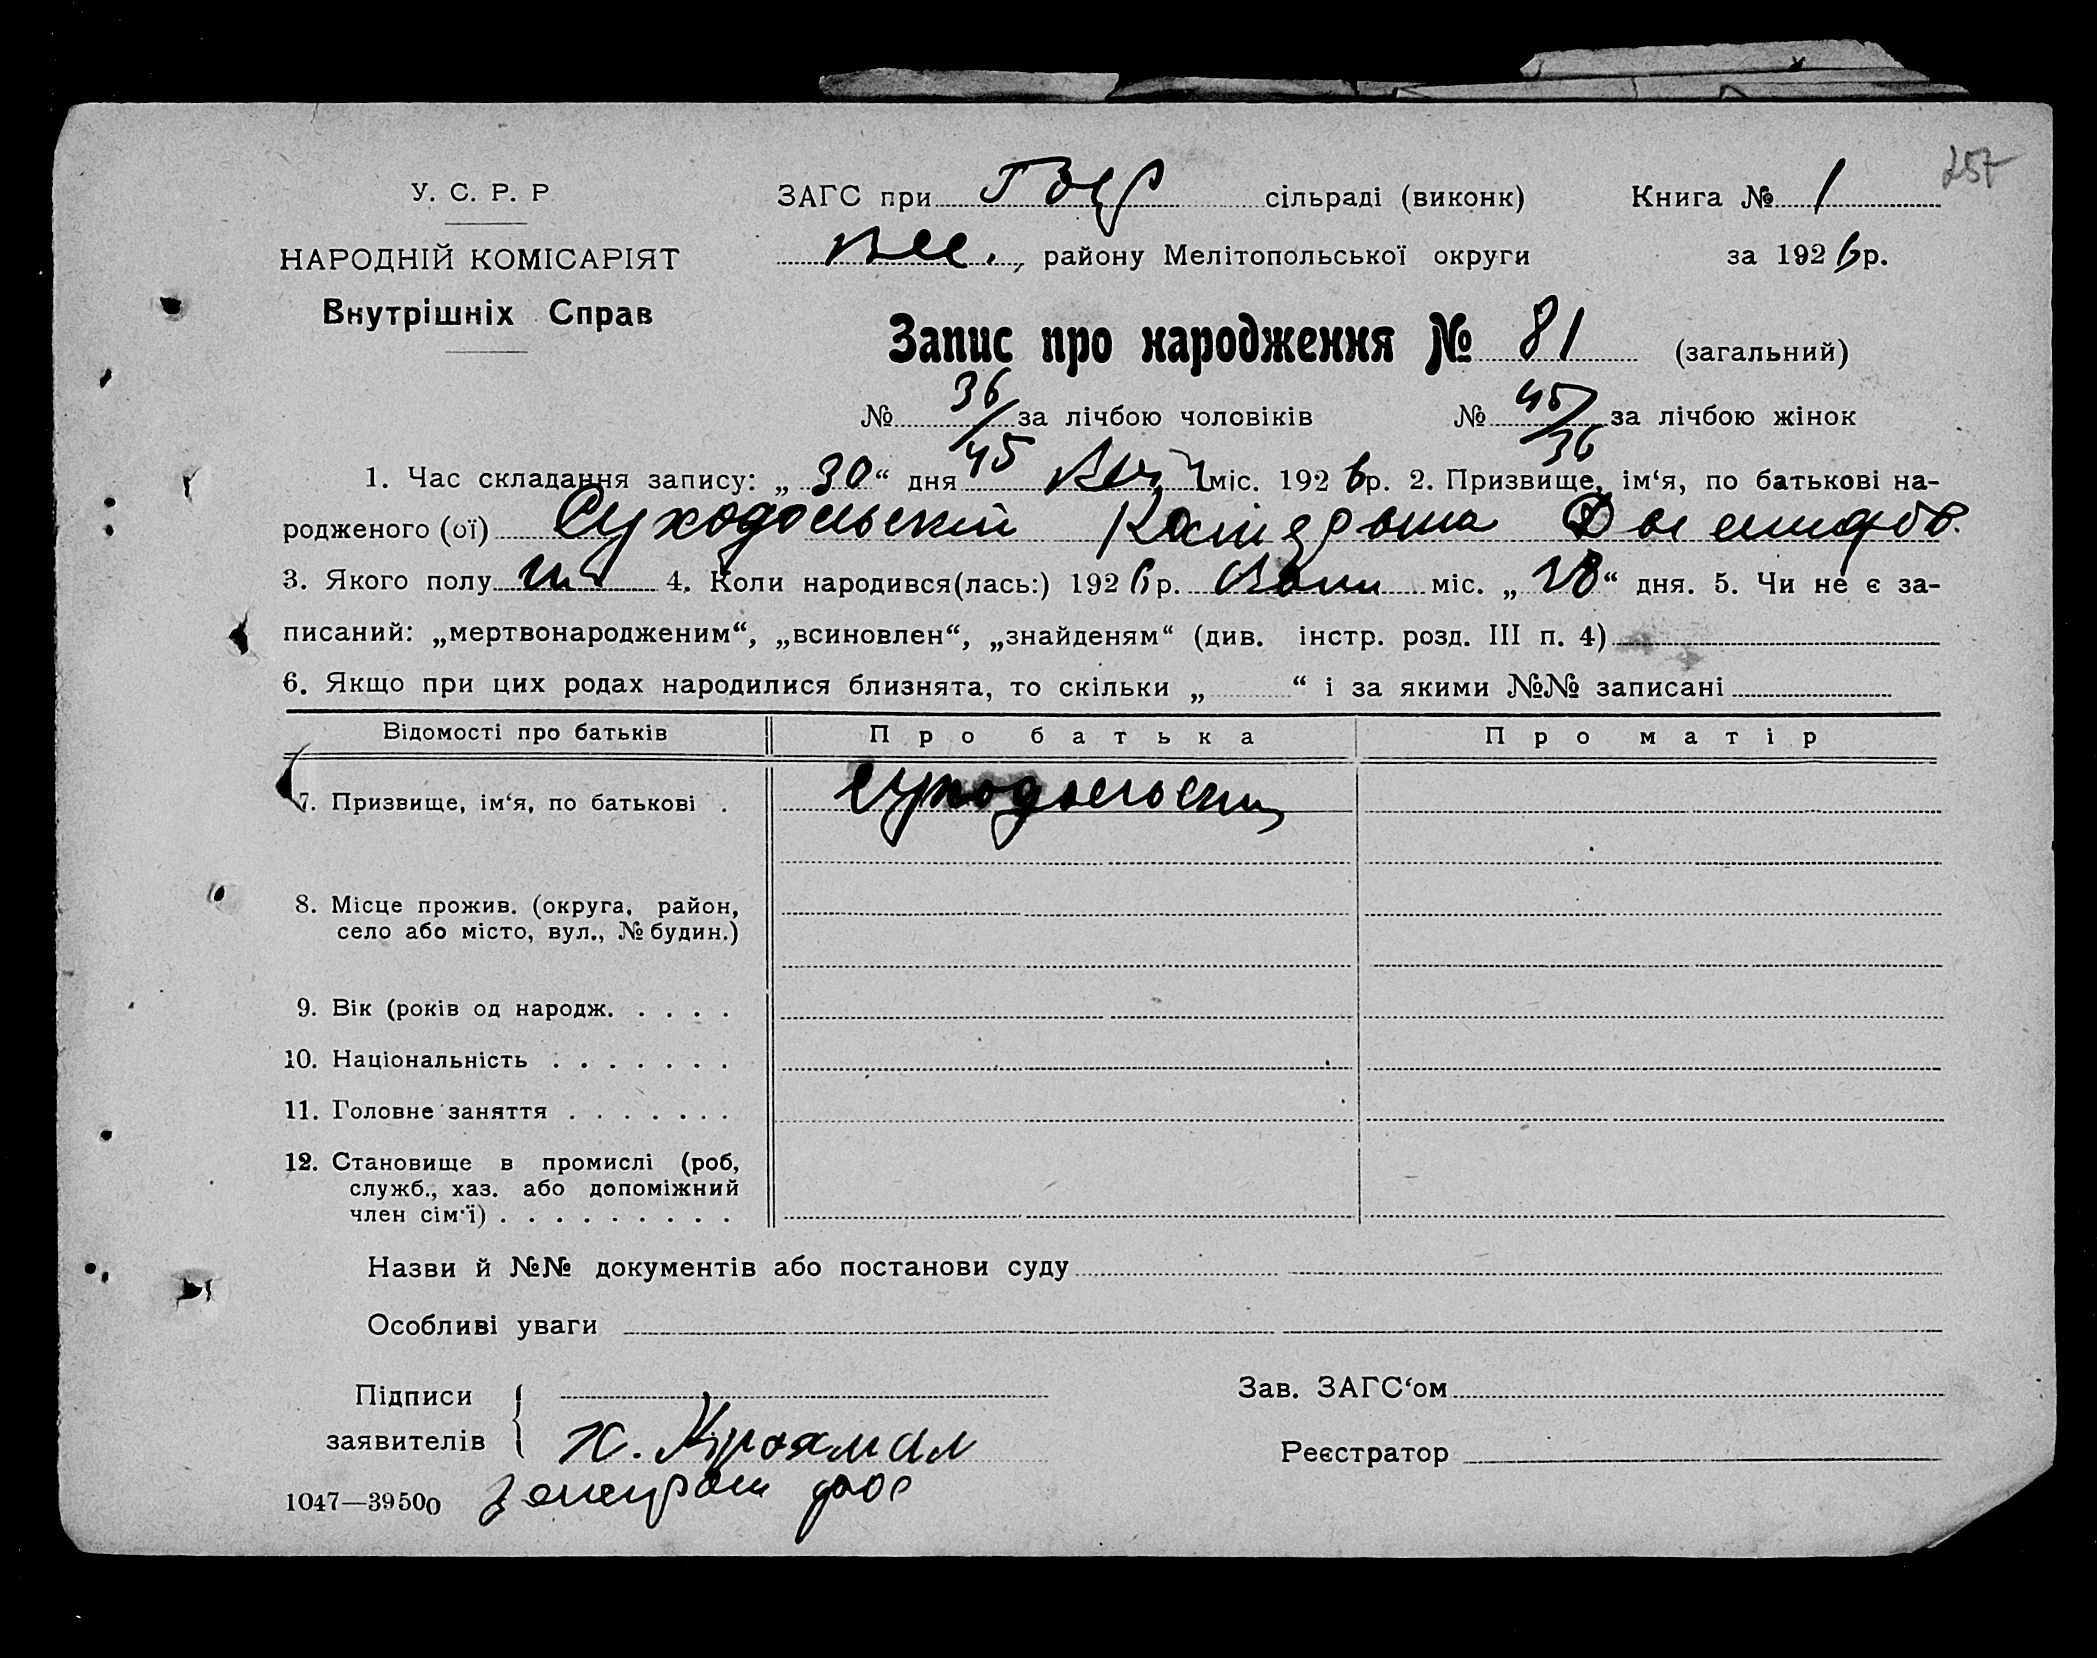 257
У. С. Р. Р
ЗАГС при сільраді (виконк) Книга № 1
НАРОДНІЙ КОМІСАРІЯТ
району Мелітопольської округи за 1926р.
Внутрішніх Справ
Запис про народження № 81 (загальний)
№ 36/45 за лічбою чоловіків № 45/36 за лічбою жінок
1. Час складання запису: „ 30 “ дня міс. 1926р. 2. Призвище, ім‘я, по батькові на-
родженого (ої) Суходольский
3. Якого полу 4. Коли народився(лась:) 1926р. міс. „ 28 “ дня. 5. Чи не є за-
писаний: „мертвонародженим“, „всиновлен“, „знайденям“ (див. інстр. розд. III п. 4)
6. Якщо при цих родах народилися близнята, то скільки „ “ і за якими №№ записані
Відомості про батьків Про батька Про матір
7. Призвище, ім‘я, по батькові .
8. Місце прожив. (округа, район,
село або місто, вул., № будин.)
9. Вік (років од народж. . . . .
10. Національність . . . . . . .
11. Головне заняття . . . . . . .
12. Становище в промислі (роб,
служб., хаз. або допоміжний
член сім‘ї) . . . . . . . . .
Назви й №№ документів або постанови суду
Особливі уваги
Підписи
заявителів
Зав. ЗАГС‘ом
Реєстратор
1047—39500